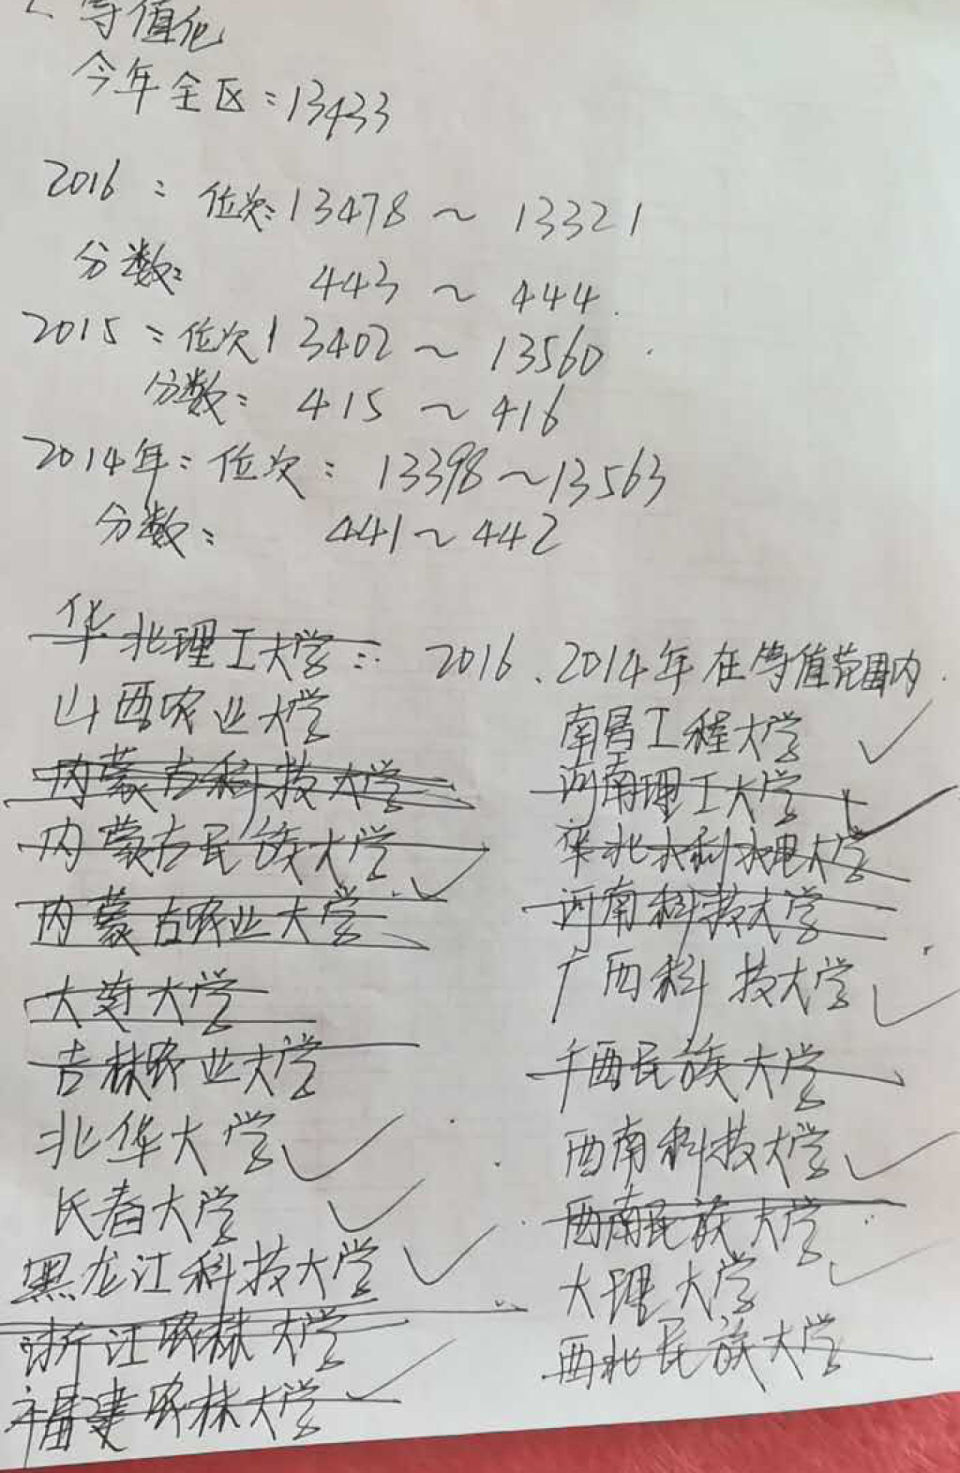 2.等值化
今年全区:13433
2016:位次:13478~13321
分数: 443~444.
2015:位次13402~13560.
分数:415~416
2014年:位次:13398~13563
分数: 441~442
华北理工大学:2016、2014年在等值范围内.
山西农业大学
内蒙古科技大学
内蒙古民族大学
内蒙古农业大学
大连大学
吉林农业大学
北华大学
长春大学
黑龙江科技大学
浙江农林大学
福建农林大学
南昌工程大学
河南理工大学
华北水利水电大学
河南科技大学
广西科技大学
广西民族大学
西南科技大学
西南民族大学
大理大学
西北民族大学